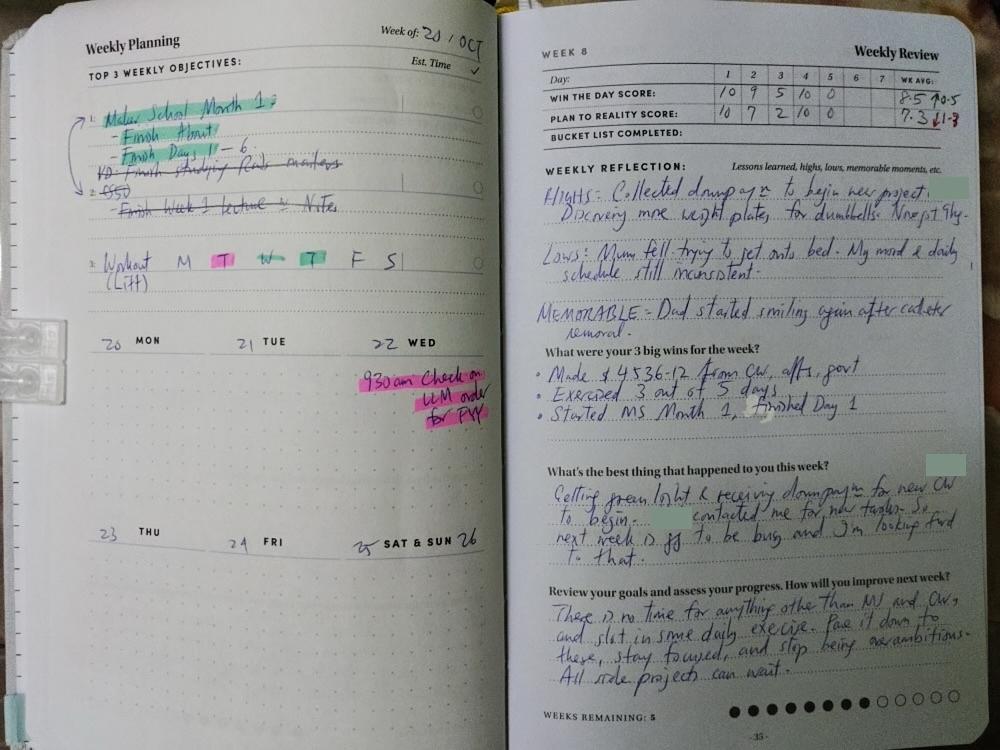 Weekly Planning
Week of: 20 / OCT
TOP 3 WEEKLY OBJECTIVES:
Est. Time ✓
1. Maker School Month 1:
- Finish About
- Finish Days 1 - 6
Finish studying
2. OSSD
- Finish Week 1 lecture Notes
3. Workout M T W T F S
(Lift)
20 MON
21 TUE
22 WED
930am Check on
LLM order
for
23 THU
24 FRI
25 SAT & SUN 26
WEEK 8
Weekly Review
Day: 1 2 3 4 5 6 7 WK AVG:
WIN THE DAY SCORE: 10 9 5 10 0 8.5 ↑0.5
PLAN TO REALITY SCORE: 10 7 2 10 0 7.3 ↓1.3
BUCKET LIST COMPLETED:
WEEKLY REFLECTION: Lessons learned, highs, lows, memorable moments, etc.
HIGHS: Collected downpaym to begin new project
Discovery more weight plates for dumbbells. Now got 9kg.
LOWS: Mum fell trying to get onto bed. My mood & daily
schedule still inconsistent.
MEMORABLE: Dad started smiling again after catheter
removal.
What were your 3 big wins for the week?
• Made $4536.12 from CW, affs, govt
• Exercised 3 out of 5 days
• Started MS Month 1, finished Day 1
What's the best thing that happened to you this week?
Getting green light & receiving downpaym for new CW
to begin. contacted me for new tasks. So
next week is gg to be busy and I'm looking fwd
to that.
Review your goals and assess your progress. How will you improve next week?
There is no time for anything other than MS and CW,
and slot in some daily exercise. Pare it down to
these, stay focused, and stop being overambitious.
All side projects can wait.
WEEKS REMAINING: 5
- 35 -